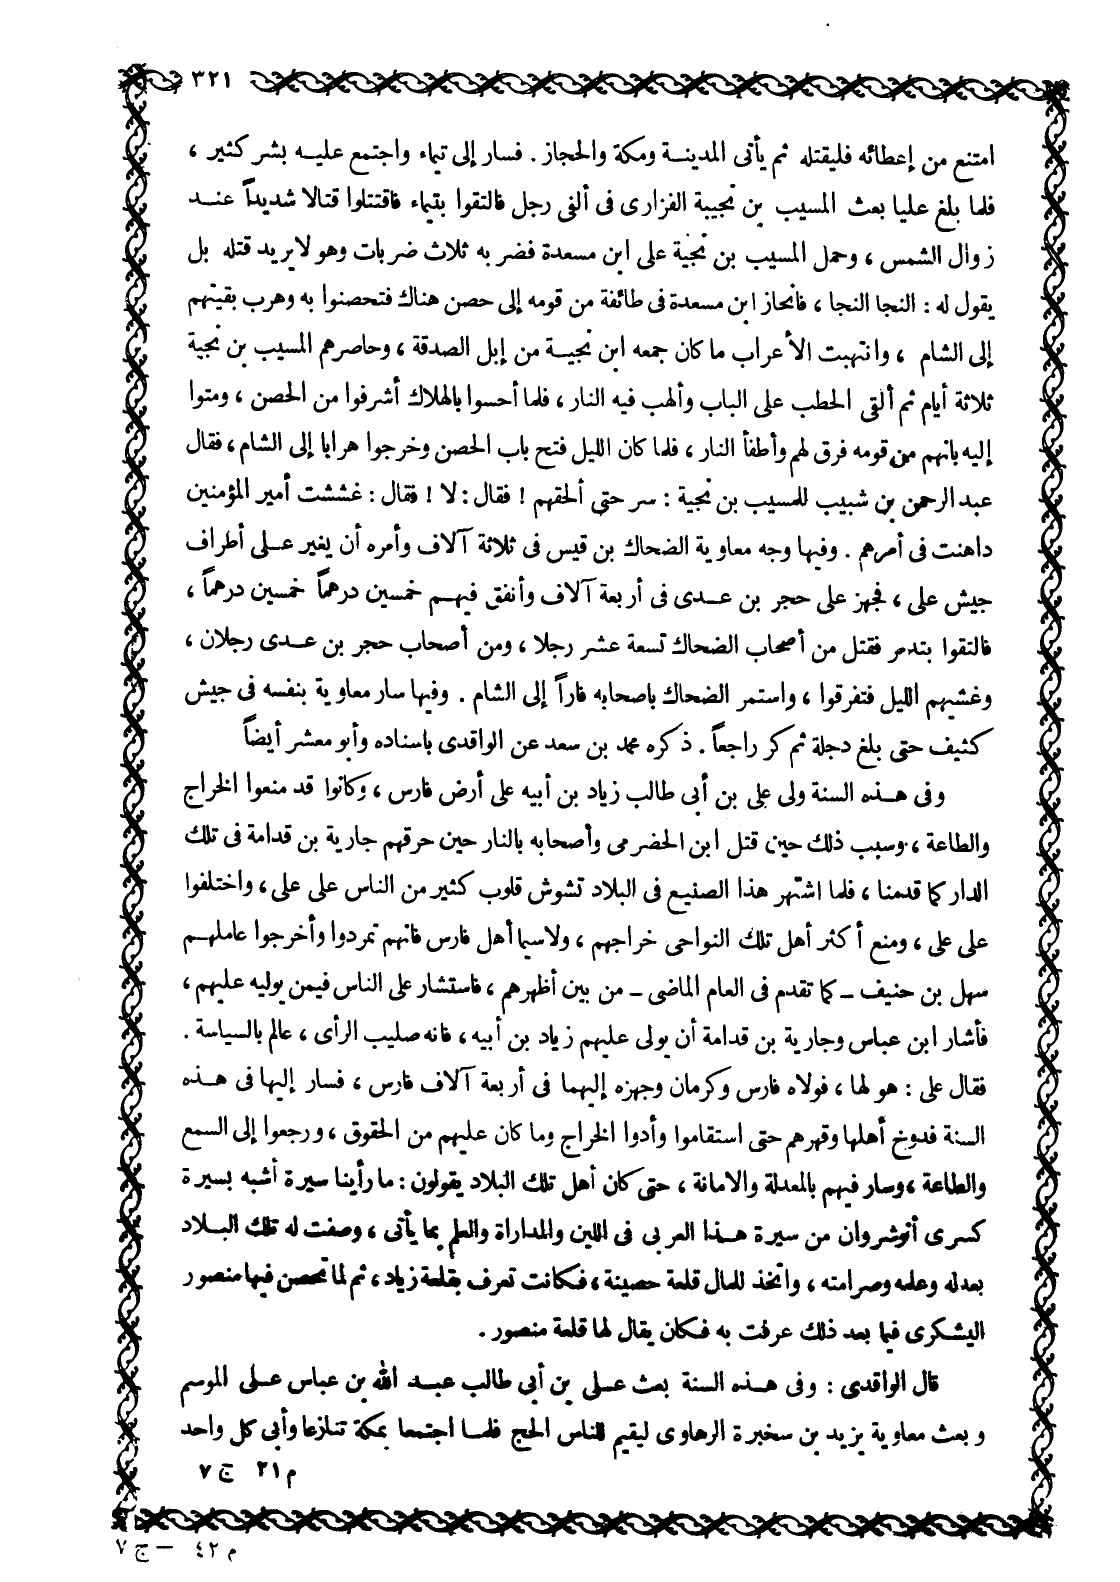 ٣٢١
امتنع من إعطائه فليقتله ثم يأتى المدينــة ومكة والحجاز . فسار إلى تيماء واجتمع عليــه بشر كثير ،
فلما بلغ عليا بعث المسيب بن نجيبة الفزارى فى ألفى رجل فالتقوا بتيماء فاقتتلوا قتالا شديداً عنــد
زوال الشمس ، وحمل المسيب بن نجية على ابن مسعدة فضربه ثلاث ضربات وهو لا يريد قتله بل
يقول له : النجا النجا ، فانحاز ابن مسعدة فى طائفة من قومه إلى حصن هناك فتحصنوا به وهرب بقيتهم
إلى الشام ، وانتهبت الأعراب ما كان جمعه ابن نجيــة من إبل الصدقة ، وحاصرهم المسيب بن نجية
ثلاثة أيام ثم ألقى الحطب على الباب وألهب فيه النار ، فلما أحسوا بالهلاك أشرفوا من الحصن ، ومتوا
إليه بانهم من قومه فرق لهم وأطفأ النار ، فلما كان الليل فتح باب الحصن وخرجوا هرابا إلى الشام ، فقال
عبد الرحمن بن شبيب للمسيب بن نجية : سر حتى ألحقهم ! فقال : لا ! فقال : غششت أمير المؤمنين
داهنت فى أمرهم . وفيها وجه معاوية الضحاك بن قيس فى ثلاثة آلاف وأمره أن يغير عــلى أطراف
جيش على ، فجهز على حجر بن عــدى فى أربعة آلاف وأنفق فيهــم خمسين درهماً خمسين درهماً ،
فالتقوا بتدمر فقتل من أصحاب الضحاك تسعة عشر رجلا ، ومن أصحاب حجر بن عــدى رجلان ،
وغشيهم الليل فتفرقوا ، واستمر الضحاك باصحابه فاراً إلى الشام . وفيها سار معاوية بنفسه فى جيش
كثيف حتى بلغ دجلة ثم كر راجعاً . ذكره محمد بن سعد عن الواقدى باسناده وأبو معشر أيضاً
وفى هــذه السنة ولى على بن أبى طالب زياد بن أبيه على أرض فارس ، وكانوا قد منعوا الخراج
والطاعة ، وسبب ذلك حين قتل ابن الحضرمى وأصحابه بالنار حين حرقهم جارية بن قدامة فى تلك
الدار كما قدمنا ، فلما اشتهر هذا الصنيع فى البلاد تشوش قلوب كثير من الناس على على ، واختلفوا
على على ، ومنع أكثر أهل تلك النواحى خراجهم ، ولاسيما أهل فارس فانهم تمردوا وأخرجوا عاملهــم
سهل بن حنيف ــ كما تقدم فى العام الماضى ــ من بين أظهرهم ، فاستشار على الناس فيمن يوليه عليهم ،
فأشار ابن عباس وجارية بن قدامة أن يولى عليهم زياد بن أبيه ، فانه صليب الرأى ، عالم بالسياسة .
فقال على : هو لها ، فولاه فارس وكرمان وجهزه إليهما فى أربعة آلاف فارس ، فسار إليها فى هــذه
السنة فدوخ أهلها وقهرهم حتى استقاموا وأدوا الخراج وما كان عليهم من الحقوق ، ورجعوا إلى السمع
والطاعة ، وسار فيهم بالمعدلة والامانة ، حتى كان أهل تلك البلاد يقولون : ما رأينا سيرة أشبه بسيرة
كسرى أنوشروان من سيرة هــذا العربى فى اللين والمداراة والعلم بما يأتى ، وصفت له تلك البــلاد
بعدله وعلمه وصرامته ، واتخذ للمال قلعة حصينة ، فــكانت تعرف بقلعة زياد ، ثم لما تحصن فيها منصور
اليشكرى فيما بعد ذلك عرفت به فــكان يقال لها قلعة منصور .
قال الواقدى : وفى هــذه السنة بعث عــلى بن أبى طالب عبــد الله بن عباس عــلى الموسم
وبعث معاوية يزيد بن سخبرة الرهاوى ليقيم للناس الحج فلمــا اجتمعا بمكة تنازعا وأبى كل واحد
م ٢١ ج ٧
م ٤٢ – ج ٧